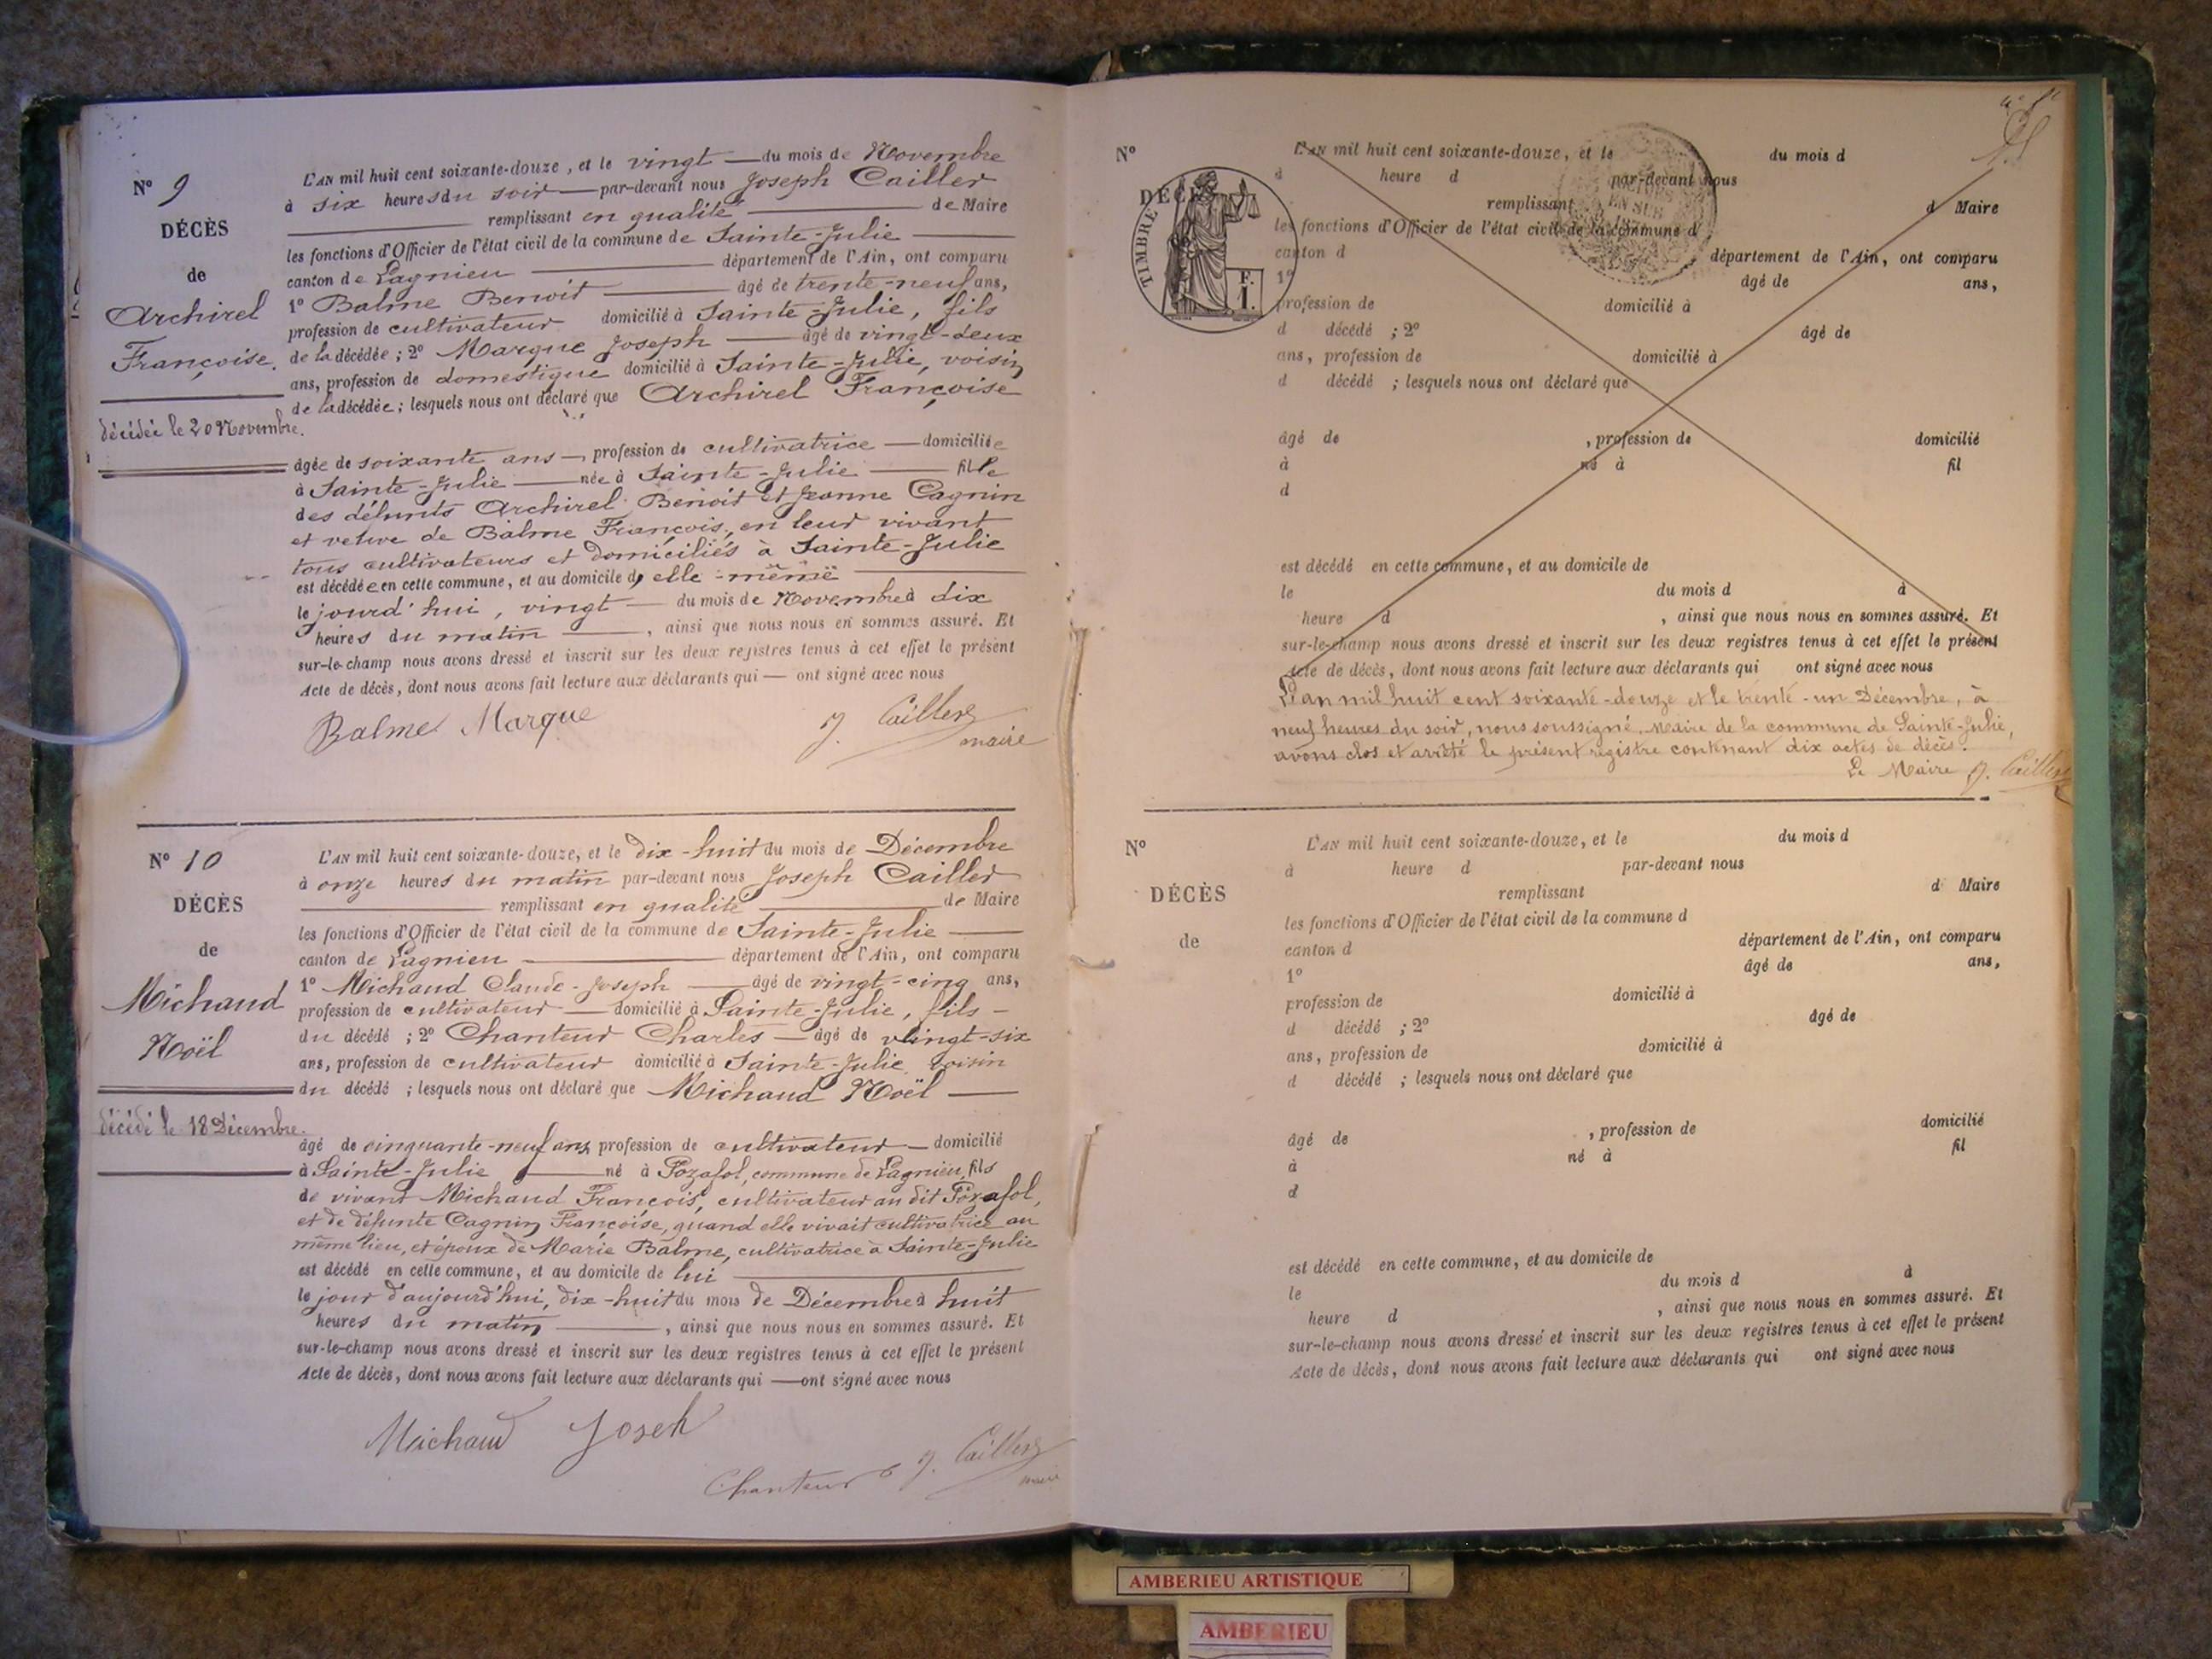 N° 9
DÉCÈS
de
Archirel
Françoise.
décédée le 20 Novembre.
L'AN mil huit cent soixante-douze, et le vingt — du mois de Novembre
à six heures du soir — par-devant nous Joseph Cailler
remplissant en qualité — de Maire
les fonctions d'Officier de l'état civil de la commune de Sainte-Julie
canton de Lagnieu — département de l'Ain, ont comparu
1° Balme Benoit — âgé de trente-neuf ans,
profession de cultivateur domicilié à Sainte-Julie, fils
de la décédée ; 2° Marque Joseph — âgé de vingt-deux
ans, profession de domestique domicilié à Sainte-Julie, voisin
de la décédée ; lesquels nous ont déclaré que Archirel Françoise
âgée de soixante ans — profession de cultivatrice — domiciliée
à Sainte-Julie — née à Sainte-Julie — fille
des défunts Archirel Benoit et Jeanne Cagnin
et veuve de Balme François, en leur vivant
tous cultivateurs et domiciliés à Sainte-Julie
est décédée en cette commune, et au domicile d'elle-même
le jourd'hui, vingt — du mois de Novembre à dix
heures du matin — , ainsi que nous nous en sommes assuré. Et
sur-le-champ nous avons dressé et inscrit sur les deux registres tenus à cet effet le présent
Acte de décès, dont nous avons fait lecture aux déclarants qui — ont signé avec nous
Balme Marque J. Cailler
maire
N° 10
DÉCÈS
de
Michaud
Noël
décédé le 18 Décembre.
L'AN mil huit cent soixante-douze, et le dix-huit du mois de Décembre
à onze heures du matin par-devant nous Joseph Cailler
remplissant en qualité — de Maire
les fonctions d'Officier de l'état civil de la commune de Sainte-Julie —
canton de Lagnieu — département de l'Ain, ont comparu
1° Michaud Claude-Joseph — âgé de vingt-cinq ans,
profession de cultivateur — domicilié à Sainte-Julie, fils —
du décédé ; 2° Chanteur Charles — âgé de vingt-six
ans, profession de cultivateur domicilié à Sainte-Julie, voisin
du décédé ; lesquels nous ont déclaré que Michaud Noël —
âgé de cinquante-neuf ans, profession de cultivateur — domicilié
à Sainte-Julie — né à Pozafol, commune de Lagnieu, fils
de vivant Michaud François, cultivateur au dit Pozafol,
et de défunte Cagnin Françoise, quand elle vivait cultivatrice au
même lieu, et époux de Marie Balme, cultivatrice à Sainte-Julie
est décédé en cette commune, et au domicile de lui —
le jour d'aujourd'hui, dix-huit du mois de Décembre à huit
heures du matin — , ainsi que nous nous en sommes assuré. Et
sur-le-champ nous avons dressé et inscrit sur les deux registres tenus à cet effet le présent
Acte de décès, dont nous avons fait lecture aux déclarants qui — ont signé avec nous
Michaud Joseh
Chanteur J. Cailler
maire
N°
DÉCÈ
TIMBRE
F.
1.
EN SUS
L'AN mil huit cent soixante-douze, et le du mois d
à heure d par-devant nous
remplissant d Maire
les fonctions d'Officier de l'état civil de la commune d
canton d département de l'Ain, ont comparu
1° âgé de ans,
profession de domicilié à
d décédé ; 2° âgé de
ans, profession de domicilié à
d décédé ; lesquels nous ont déclaré que
âgé de , profession de domicilié
à né à fil
d
est décédé en cette commune, et au domicile de
le du mois d à
heure d , ainsi que nous nous en sommes assuré. Et
sur-le-champ nous avons dressé et inscrit sur les deux registres tenus à cet effet le présent
Acte de décès, dont nous avons fait lecture aux déclarants qui ont signé avec nous
L'an mil huit cent soixante-douze et le trente-un Décembre, à
neuf heures du soir, nous soussigné, Maire de la commune de Sainte-Julie,
avons clos et arrêté le présent registre contenant dix actes de décès.
Le Maire J. Cailler
N°
DÉCÈS
de
L'AN mil huit cent soixante-douze, et le du mois d
à heure d par-devant nous
remplissant d Maire
les fonctions d'Officier de l'état civil de la commune d
canton d département de l'Ain, ont comparu
1° âgé de ans,
profession de domicilié à
d décédé ; 2° âgé de
ans, profession de domicilié à
d décédé ; lesquels nous ont déclaré que
âgé de , profession de domicilié
à né à fil
d
est décédé en cette commune, et au domicile de
le du mois d à
heure d , ainsi que nous nous en sommes assuré. Et
sur-le-champ nous avons dressé et inscrit sur les deux registres tenus à cet effet le présent
Acte de décès, dont nous avons fait lecture aux déclarants qui ont signé avec nous
AMBERIEU ARTISTIQUE
AMBERIEU